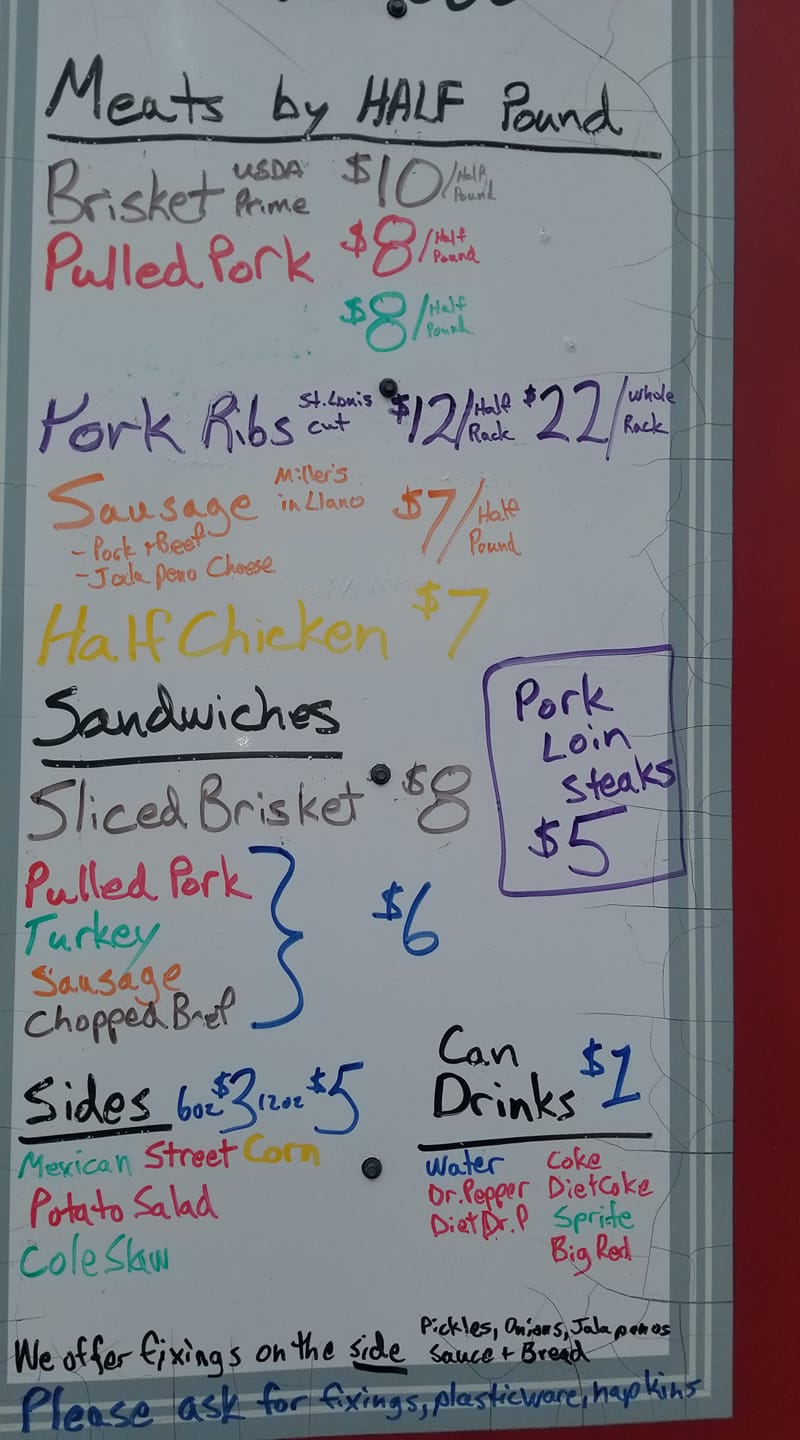 Meats by HALF Pound
Brisket USDA Prime $10/Half Pound
Pulled Pork $8/Half Pound
$8/Half Pound
Pork Ribs St. Louis cut $12/Half Rack $22/Whole Rack
Sausage Miller's in Llano $7/Half Pound
- Pork + Beef
- Jalapeno Cheese
Half Chicken $7
Pork
Loin
Steaks
$5
Sandwiches
Sliced Brisket $8
Pulled Pork
Turkey
Sausage
Chopped Beef
$6
Sides 6oz $3 12oz $5
Mexican Street Corn
Potato Salad
Cole Slaw
Can
Drinks $1
Water Coke
Dr. Pepper Diet Coke
Diet Dr. P Sprite
Big Red
We offer fixings on the side Pickles, Onions, Jalapenos
Sauce + Bread
Please ask for fixings, plasticware, napkins